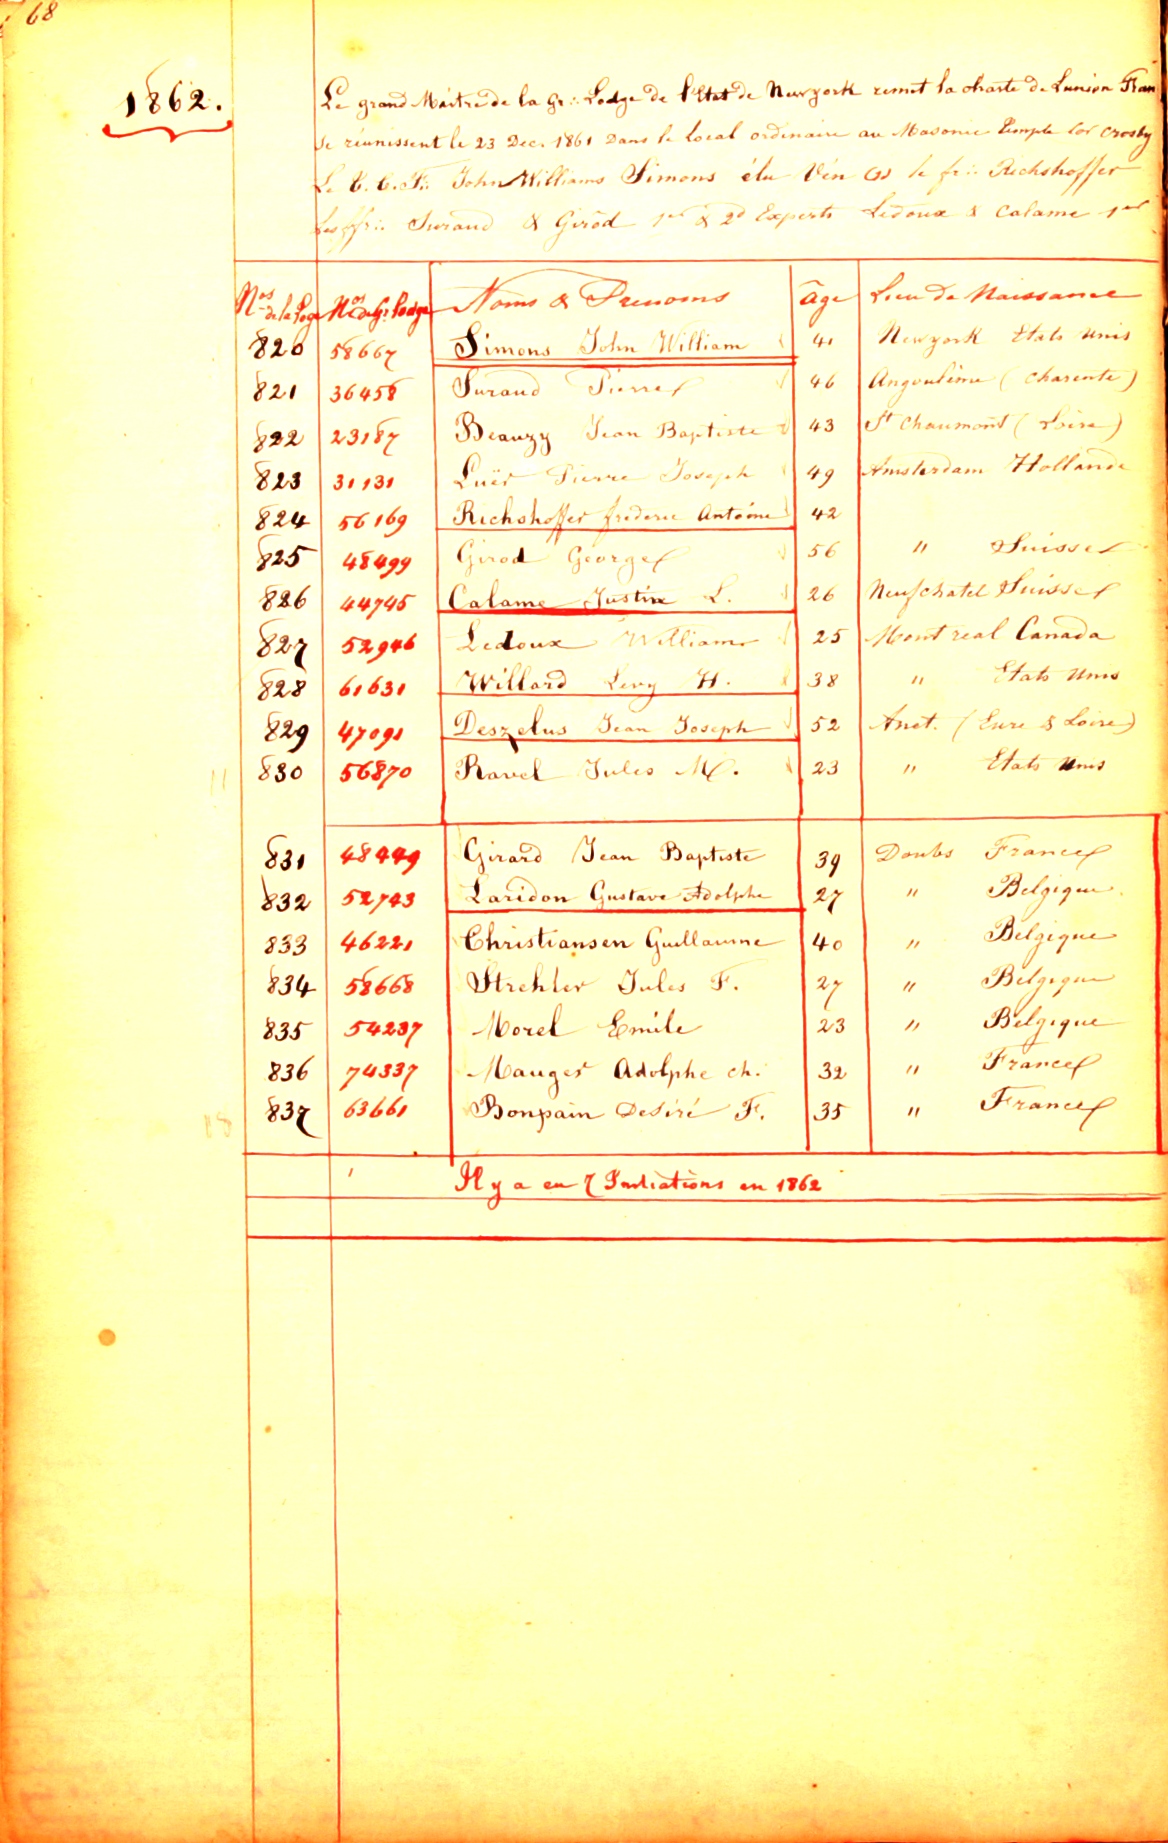 68
1862.
Le grand Maitre de la Gr∴ Lodge de l'Etat de Newyork remet la charte de Lunion Fran
se réunissent le 23 Dec. 1861 dans le Local ordinaire au Masonic Temple Cor Crosby
Le T. C. F∴ John Williams Simons élu Vén le fr∴ Richshoffer
Les ffr∴ Suraud & Girod 1er & 2d Experts Ledoux & Calame 1er
Nos de la Loge Nos de Gr Lodge Noms & Prenoms âge Lieu de Naissance
820 58667 Simons John William 41 Newyork Etats Unis
821 36458 Suraud Pierre 46 Angoulême (Charente)
822 23187 Beauzy Jean Baptiste 43 St Chaumont (Loire)
823 31131 Luër Pierre Joseph 49 Amsterdam Hollande
824 56169 Richshoffer frederic Antoine 42
825 48499 Girod George 56 " Suisse
826 44745 Calame Justin L. 26 Neufchatel Suisse
827 52946 Ledoux William 25 Montreal Canada
828 61631 Willard Levy H. 38 " Etats Unis
829 47091 Deszelus Jean Joseph 52 Anet. (Eure & Loire)
830 56870 Ravel Jules M. 23 " Etats Unis
831 48449 Girard Jean Baptiste 39 Doubs France
832 52743 Laridon Gustave Adolphe 27 " Belgique
833 46221 Christiansen Guillaume 40 " Belgique
834 58668 Strehler Jules F. 27 " Belgique
835 54237 Morel Emile 23 " Belgique
836 74337 Mauger Adolphe ch. 32 " France
837 63661 Bonpain Desiré F. 35 " France
Il y a eu 7 Initiations en 1862